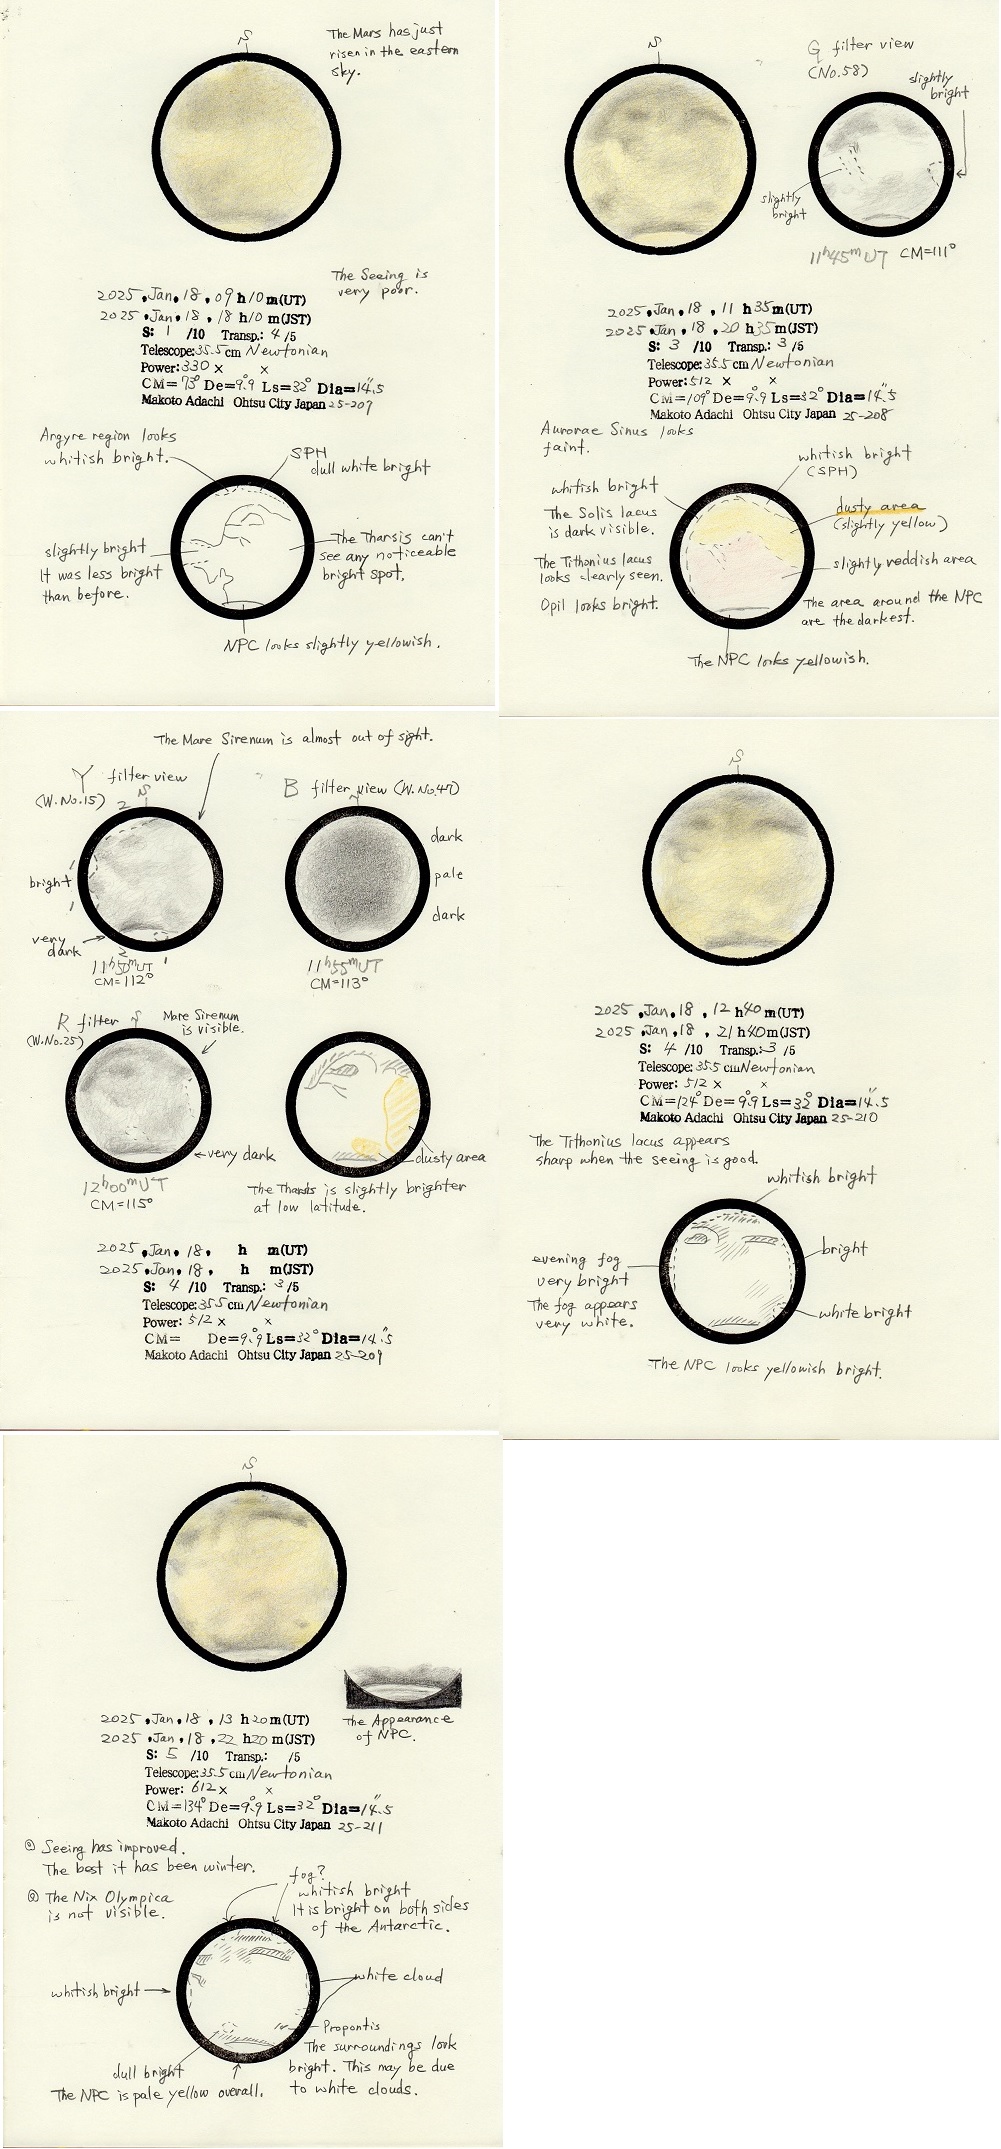 S
The Mars has just
risen in the eastern
sky.
The Seeing is
very poor.
2025.Jan.18.09 h10 m(UT)
2025.Jan.18.18 h10 m(JST)
S: 1 /10 Transp.: 4/5
Telescope:35.5cm Newtonian
Power:330 × ×
CM=73° De=9.°9 Ls=32° Dia=14."5
Makoto Adachi Ohtsu City Japan 25-207
Argyre region looks
whitish bright.
SPH
dull white bright
slightly bright
It was less bright
than before.
The Tharsis can't
see any noticeable
bright spot.
NPC looks slightly yellowish.
S
G filter view
(No.58)
slightly
bright
slightly
bright
11h45mUT CM=111°
2025.Jan.18.11 h35m(UT)
2025.Jan.18.20 h35m(JST)
S: 3 /10 Transp.: 3/5
Telescope:35.5cm Newtonian
Power:512 × ×
CM=109° De=9.°9 Ls=32° Dia=14."5
Makoto Adachi Ohtsu City Japan 25-208
Aurorae Sinus looks
faint.
whitish bright
(SPH)
whitish bright
The Solis lacus
is dark visible.
The Tithonius lacus
looks clearly seen.
Opil looks bright.
dusty area
(slightly yellow)
slightly reddish area
The area around the NPC
are the darkest.
The NPC looks yellowish.
The Mare Sirenum is almost out of sight.
Y filter view
(W.No.15)
S
2
bright
1
very
dark
2
1
11h50mUT
CM=112°
B filter view (W.No.47)
dark
pale
dark
11h55mUT
CM=113°
R filter
(W.No.25)
S
Mare Sirenum
is visible.
very dark
12h00mUT
CM=115°
dusty area
The Tharsis is slightly brighter
at low latitude.
2025.Jan.18. h m(UT)
2025.Jan.18. h m(JST)
S: 4 /10 Transp.: 3/5
Telescope:35.5cm Newtonian
Power:512 × ×
CM= De=9.°9 Ls=32° Dia=14."5
Makoto Adachi Ohtsu City Japan 25-209
S
2025.Jan.18.12 h40m(UT)
2025.Jan.18.21 h40m(JST)
S: 4 /10 Transp.:3 /5
Telescope:35.5cm Newtonian
Power:512 × ×
CM=124° De=9.°9 Ls=32° Dia=14."5
Makoto Adachi Ohtsu City Japan 25-210
The Tithonius lacus appears
sharp when the seeing is good.
whitish bright
evening fog
very bright
The fog appears
very white.
bright
white bright
The NPC looks yellowish bright.
S
The Appearance
of NPC.
2025.Jan.18.13 h20m(UT)
2025.Jan.18.22 h20m(JST)
S: 5 /10 Transp.: /5
Telescope:35.5cm Newtonian
Power:612× ×
CM=134° De=9.°9 Ls=32° Dia=14."5
Makoto Adachi Ohtsu City Japan 25-211
◎ Seeing has improved.
The best it has been winter.
◎ The Nix Olympica
is not visible.
fog?
whitish bright
It is bright on both sides
of the Antarctic.
whitish bright
white cloud
Propontis
The surroundings look
bright. This may be due
to white clouds.
dull bright
The NPC is pale yellow overall.